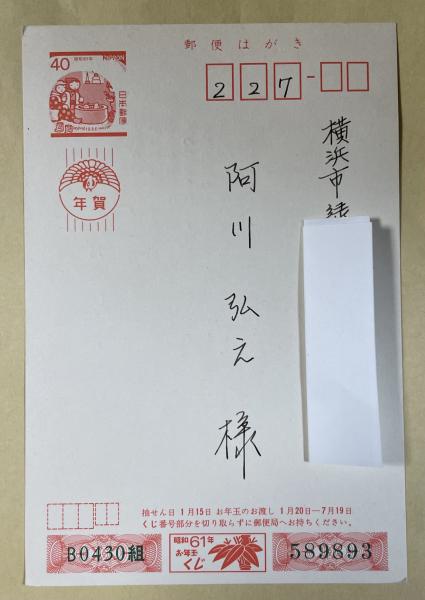 郵便はがき
40
昭和61年
NIPPON
日本郵便
年賀
227-
横浜市緑
阿川弘之様
抽せん日 1月15日 お年玉のお渡し 1月20日—7月19日
くじ番号部分を切り取らずに郵便局へお持ちください。
B0430組
昭和61年
お年玉
くじ
589893